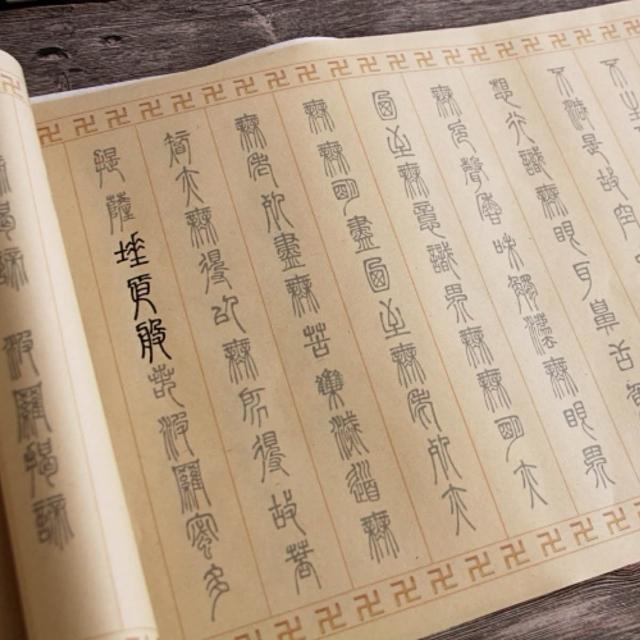 不生
不減是故空中
想行識無眼耳鼻舌身
無色聲香味觸法無眼界
乃至無意識界無無明亦
無無明盡乃至無老死亦
無老死盡無苦集滅道無
智亦無得以無所得故菩
提薩埵依般若波羅蜜多
諦波羅揭諦